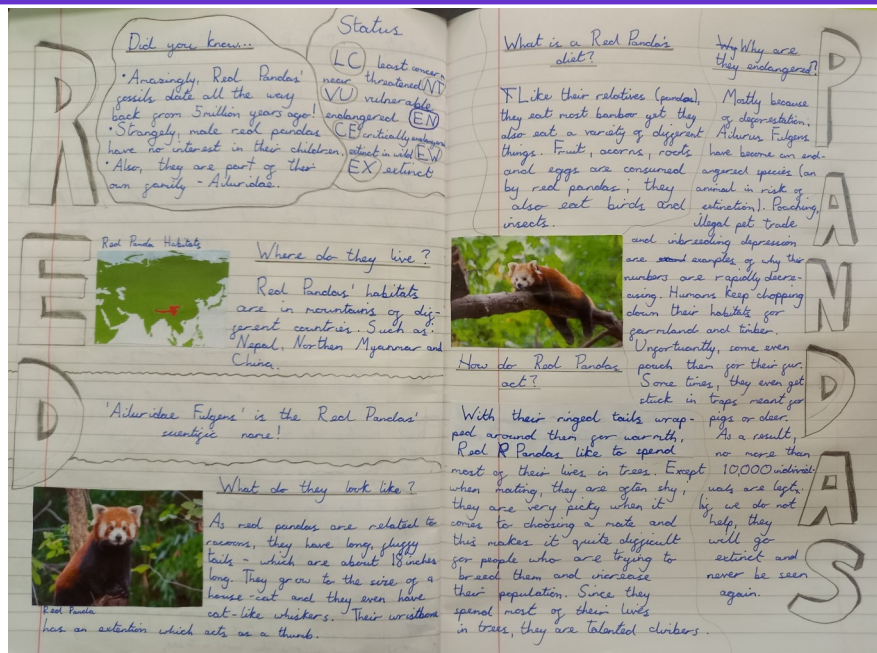 RED
Did you know...
• Amazingly, Red Pandas'
fossils date all the way
back from 5 million years ago!
• Strangely, male red pandas
have no interest in their children.
• Also, they are part of their
own family - Ailuridae.
Status
LC least concern
near threatened NT
VU vulnerable
endangered EN
CE critically endangered
extinct in wild EW
EX extinct
Red Panda Habitats
Where do they live?
Red Pandas' habitats
are in mountains of dif-
ferent countries. Such as:
Nepal, Northen Myanmar and
China.
'Ailuridae Fulgens' is the Red Pandas'
scientific name!
What do they look like?
As red pandas are related to
racoons, they have long, fluffy
tails - which are about 18 inches
long. They grow to the size of a
house-cat and they even have
cat-like whiskers. Their wristbone
has an extention which acts as a thumb.
Red Panda
PANDAS
What is a Red Panda's
diet?
Like their relatives (pandas),
they eat most bamboo yet they
also eat a variety of different
things. Fruit, acorns, roots
and eggs are consumed
by red pandas, they
also eat birds and
insects.
How do Red Pandas
act?
With their ringed tails wrap-
ped around them for warmth,
Red Pandas like to spend
most of their lives in trees. Except
when mating, they are often shy,
they are very picky when it
comes to choosing a mate and
this makes it quite difficult
for people who are trying to
breed them and increase
their population. Since they
spend most of their lives
in trees, they are talented climbers.
Wy Why are
they endangered?
Mostly because
of deforestation,
Ailurus Fulgens
have become an end-
angered species (an
animal in risk of
extinction). Poaching,
illegal pet trade
and inbreeding depression
are examples of why their
numbers are rapidly decre-
asing. Humans keep chopping
down their habitats for
farmland and timber.
Unfortuantly, some even
poach them for their fur.
Some times, they even get
stuck in traps meant for
pigs or deer.
As a result,
no more than
10,000 individ-
uals are left.
If we do not
help, they
will go
extinct and
never be seen
again.